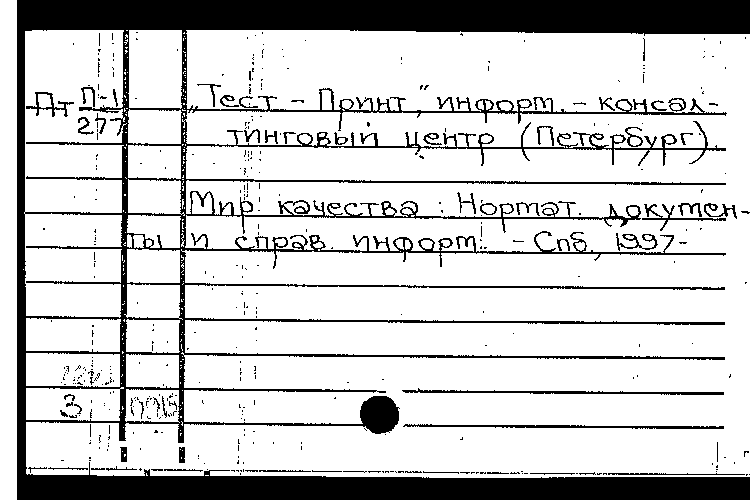 Пт П-1 „Тест - Принт," информ. - консал-
277 тинговый центр (Петербург).
Мир качества : Нормат. докумен-
ты и справ. информ. - Спб., 1997-
3